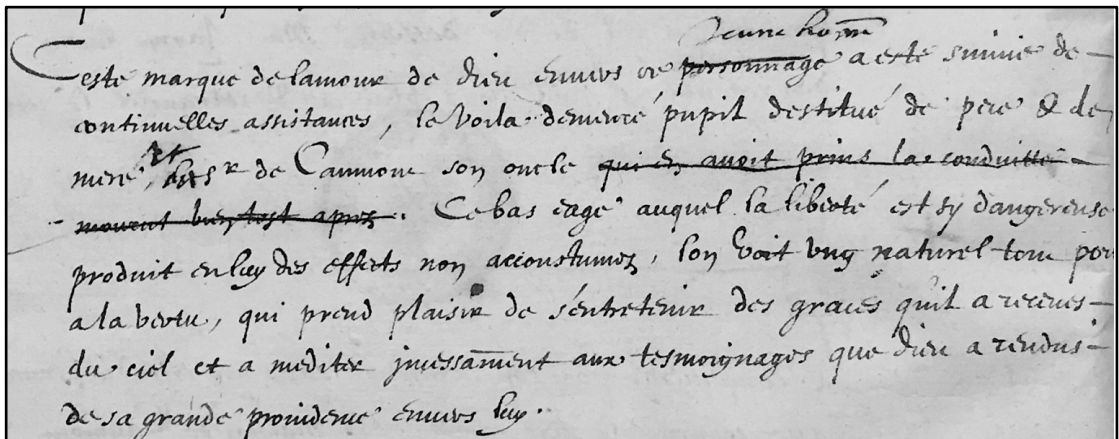 Jeune hom̄e
Ceste marque de lamour de dieu enuers ce personnage a esté suiuie de
continuelles assistances, le voila demeuré pupil destitué de pere & de
mere, et du Sr de Caumont son oncle qui en auoit prins la conduitte
mourut bien tost apres. Ce bas eage auquel la liberté est sy dangereuse
produit en luy des effects non accoustumez, lon voit vng naturel tout
a la vertu, qui prend plaisir de s'entretenir des graces qu'il a receues
du ciel et a mediter jncessam̄ent aux tesmoignages que dieu a rendus
de sa grande prouidence enuers luy.